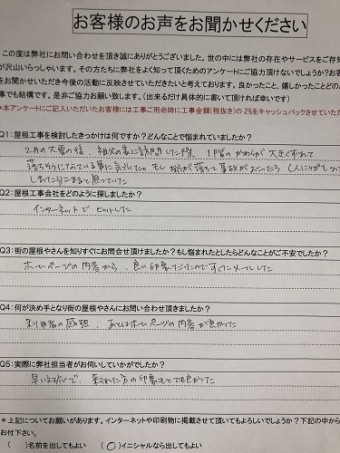 お客様のお声をお聞かせください
この度は弊社にお問い合わせを頂き誠にありがとうございます。世の中には弊社の存在やサービスをご存知
が沢山いらっしゃいます。その方たちに弊社をよく知って頂くためのアンケートにご協力頂けないでしょうか？お客
をお聞かせいただき今後の活動に反映させていただきたいと考えております。良かったこと、嬉しかったことどの
事でも結構です。是非ご協力お願い致します。（出来るだけ具体的に書いて頂ければ幸いです）
*本アンケートにご記入いただいたお客様には工事ご用命時に工事金額(税抜き)の 2%をキャッシュバックさせていた
Q1：屋根工事を検討したきっかけは何ですか？どんなことで悩まれていましたか？
2月の大雪の後、祖父の家に訪問した際、1階のかわらが大きくずれて
落ちそうになっている事に気づいた。もし
しまったらこまると思っていた
Q2：屋根工事会社をどのように探しましたか？
インターネットでヒットした
Q3：街の屋根やさんを知りすぐにお問合せ頂けましたか？もし悩まれたとしたらどんなことがご不安でしたか？
ホームページの内容から、良い印象だったのですぐにメールした
Q4：何が決め手となり街の屋根やさんにお問い合わせ頂きましたか？
利用者の感想、あとはホームページの内容が良かった
Q5：実際に弊社担当者がお伺いしていかがでしたか？
早い対応で、来られた方の印象もとても良かった
*上記についてお願いがあります。インターネットや印刷物に掲載させて頂いてもよろしいでしょうか？下記の中から
お付下さい。
(　)名前を出してもよい　(○)イニシャルなら出してもよい